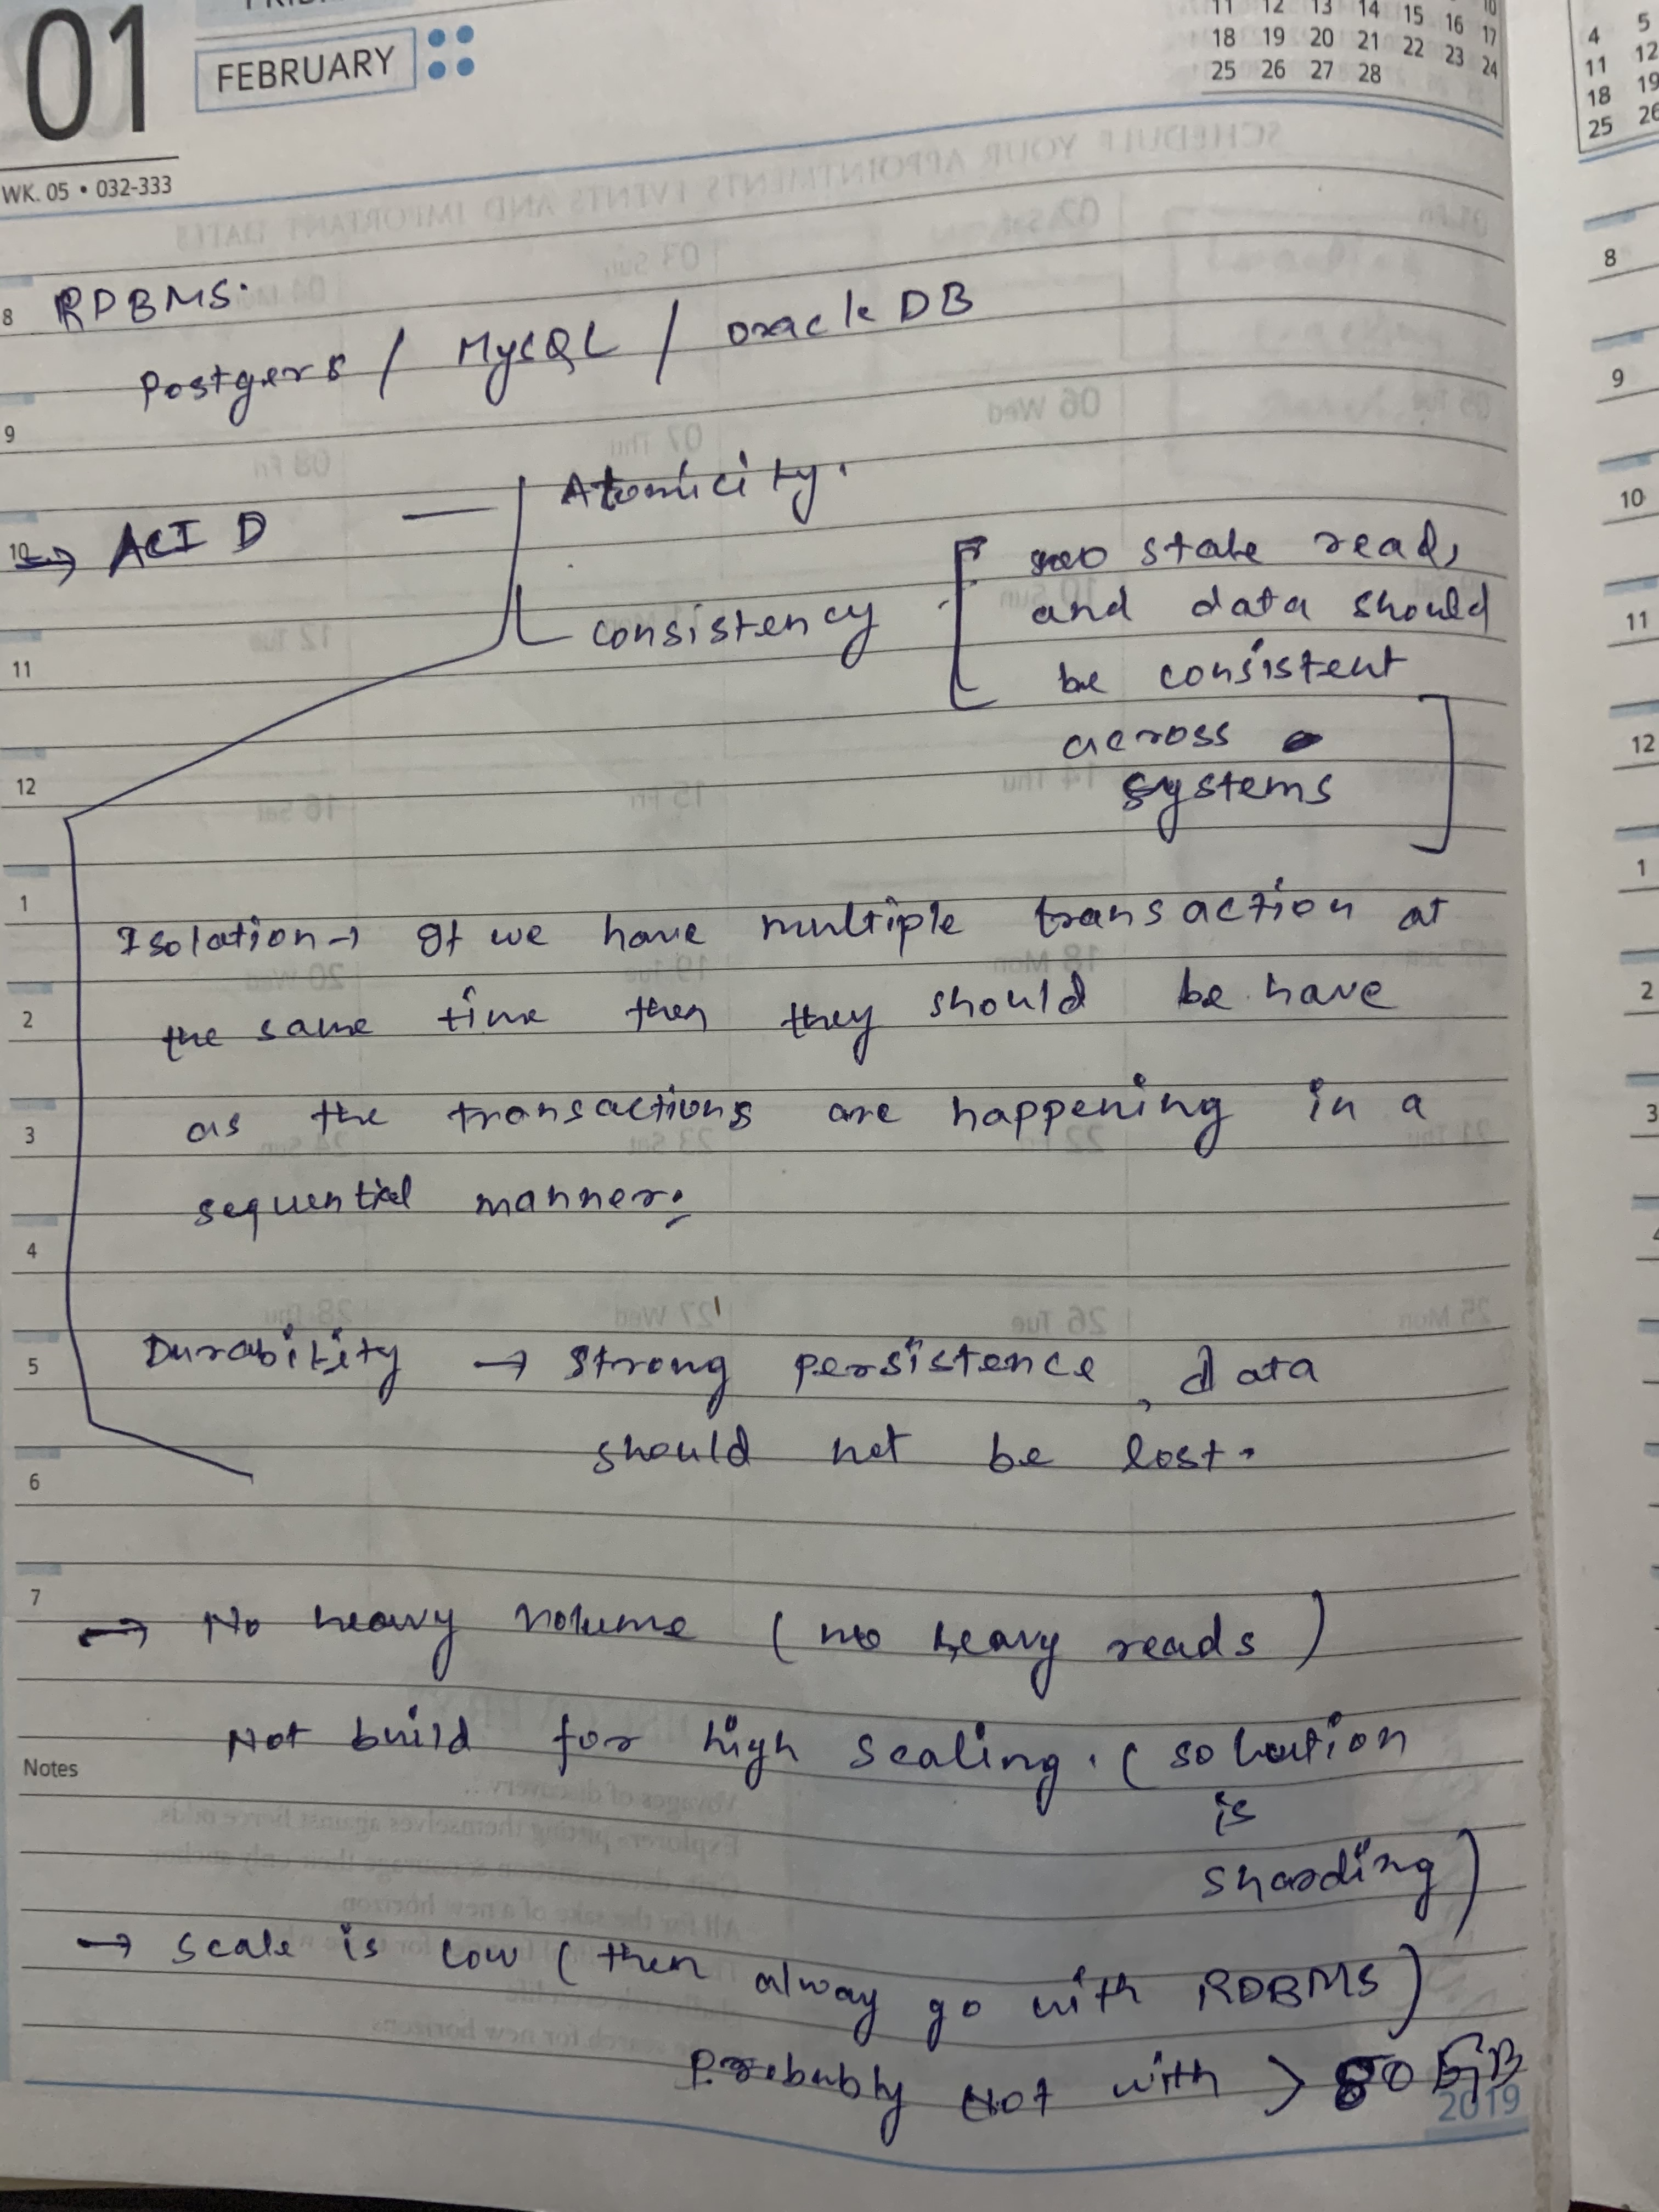 01
FEBRUARY
WK. 05 • 032-333
11 12 13 14 15 16 17
18 19 20 21 22 23 24
25 26 27 28
4 5
11 12
18 19
25 26
8 RDBMS.
Postgers / MySQL / oracle DB
9
10 → ACID — Atomicity.
consistency [ no stale read,
and data should
be consistent
across
systems ]
11
12
1
Isolation → If we have multiple transaction at
2 the same time then they should be have
3 as the transactions are happening in a
sequential manner.
4
5 Durability → strong persistence, data
should not be lost.
6
7
→ No heavy volume (no heavy reads)
Not build for high scaling. (solution
is
sharding)
Notes
→ scale is low (then alway go with RDBMS)
Probably not with > 80 GB
2019
8
9
10
11
12
1
2
3